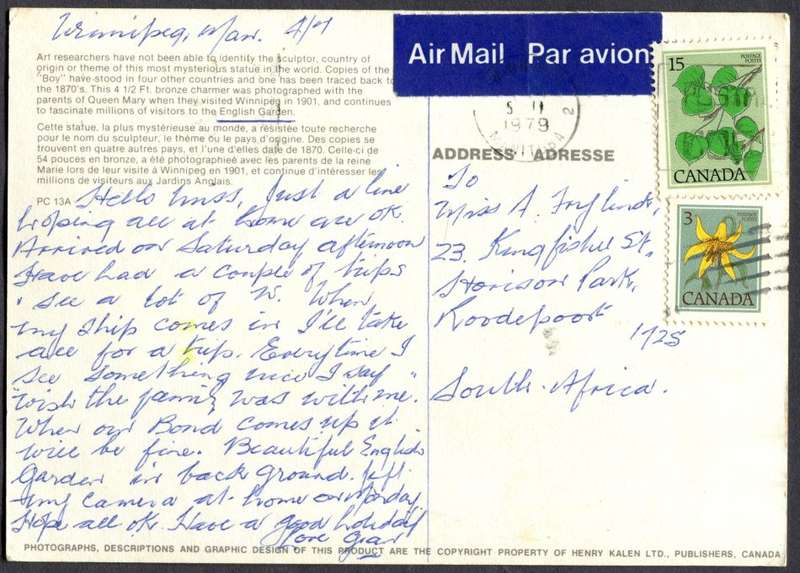 Winnipeg, Man. 4/7
Art researchers have not been able to identify the sculptor, country of
origin or theme of this most mysterious statue in the world. Copies of the
"Boy" have stood in four other countries and one has been traced back to
the 1870's. This 4 1/2 Ft. bronze charmer was photographed with the
parents of Queen Mary when they visited Winnipeg in 1901, and continues
to fascinate millions of visitors to the English Garden.
Cette statue, la plus mystérieuse au monde, a résistée toute recherche
pour le nom du sculpteur, le thème où le pays d'origine. Des copies se
trouvent en quatre autres pays, et l'une d'elles date de 1870. Celle-ci de
54 pouces en bronze, a été photographieé avec les parents de la reine
Marie lors de leur visite à Winnipeg en 1901, et continue d'intéresser les
millions de visiteurs aux Jardins Anglais.
PC 13A
Hello Miss, Just a line
hoping all at home are ok.
Arrived on Saturday afternoon
Have had a couple of trips
& see a lot of W. When
my ship comes in I'll take
all for a trip. Everytime I
see something nice I say "
wish the family was with me.
When our Bond comes up it
will be fine. Beautiful English
Garden in back ground. Left
my camera at home
Hope all ok. Have a good holiday
Love Gran
Air Mail Par avion
5 II
1979
MANITOBA 2
ADDRESS ADRESSE
To
Miss A.
23. Kingfisher St.
Horison Park,
Roodepoort
1725
South Africa.
15
POSTAGE
POSTES
CANADA
3
POSTAGE POSTES
CANADA
PHOTOGRAPHS, DESCRIPTIONS AND GRAPHIC DESIGN OF THIS PRODUCT ARE THE COPYRIGHT PROPERTY OF HENRY KALEN LTD., PUBLISHERS, CANADA